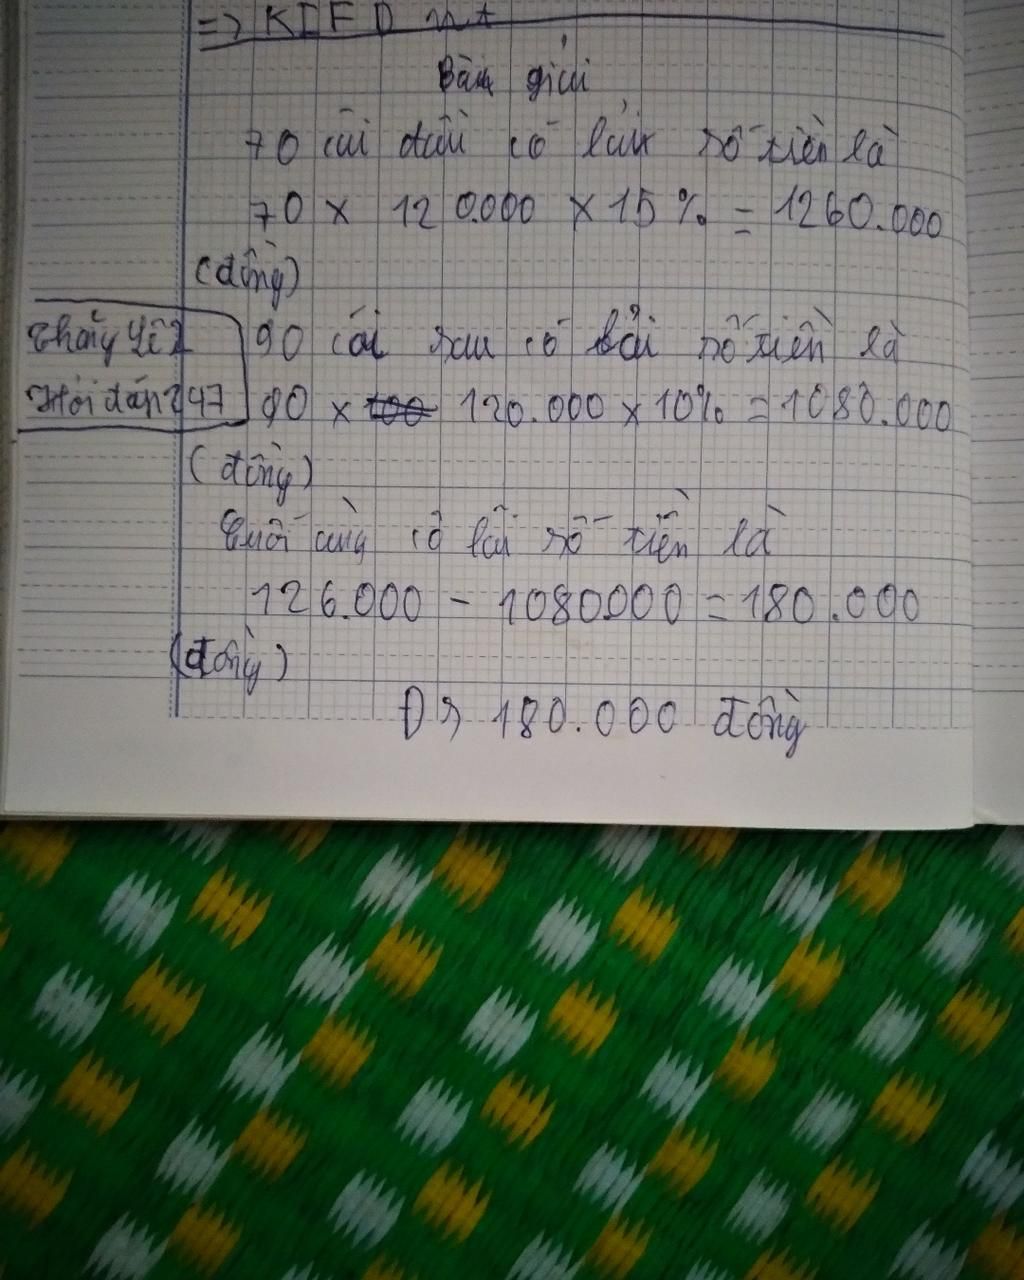 => KIFD
Bài giải
70 cái đầu có lãi số tiền là
70 x 120.000 x 15% = 1260.000
(đồng)
Thầy
Hỏi đáp 247
90 cái sau có lãi số tiền là
90 x 100 120.000 x 10% = 1080.000
(đồng)
Cuối cùng có lãi số tiền là
126.000 - 1080000 = 180.000
(đồng)
Đs 180.000 đồng